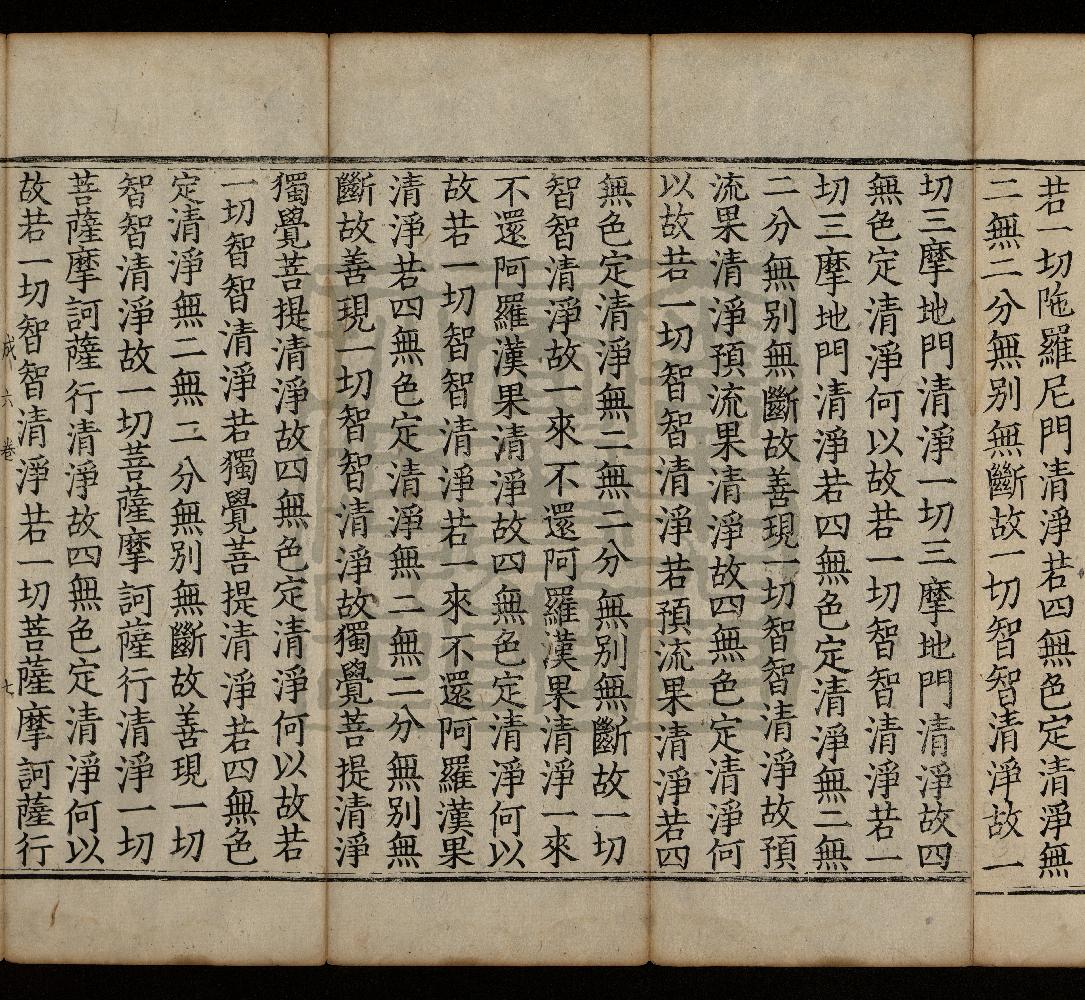 若一切陁羅尼門清淨若四無色定清淨無
二無二分無别無斷故一切智智清淨故一
切三摩地門清淨一切三摩地門清淨故四
無色定清淨何以故若一切智智清淨若一
切三摩地門清淨若四無色定清淨無二無
二分無别無斷故善現一切智智清淨故預
流果清淨預流果清淨故四無色定清淨何
以故若一切智智清淨若預流果清淨若四
無色定清淨無二無二分無别無斷故一切
智智清淨故一來不還阿羅漢果清淨一來
不還阿羅漢果清淨故四無色定清淨何以
故若一切智智清淨若一來不還阿羅漢果
清淨若四無色定清淨無二無二分無别無
斷故善現一切智智清淨故獨覺菩提清淨
獨覺菩提清淨故四無色定清淨何以故若
一切智智清淨若獨覺菩提清淨若四無色
定清淨無二無二分無别無斷故善現一切
智智清淨故一切菩薩摩訶薩行清淨一切
菩薩摩訶薩行清淨故四無色定清淨何以
故若一切智智清淨若一切菩薩摩訶薩行
六卷 七